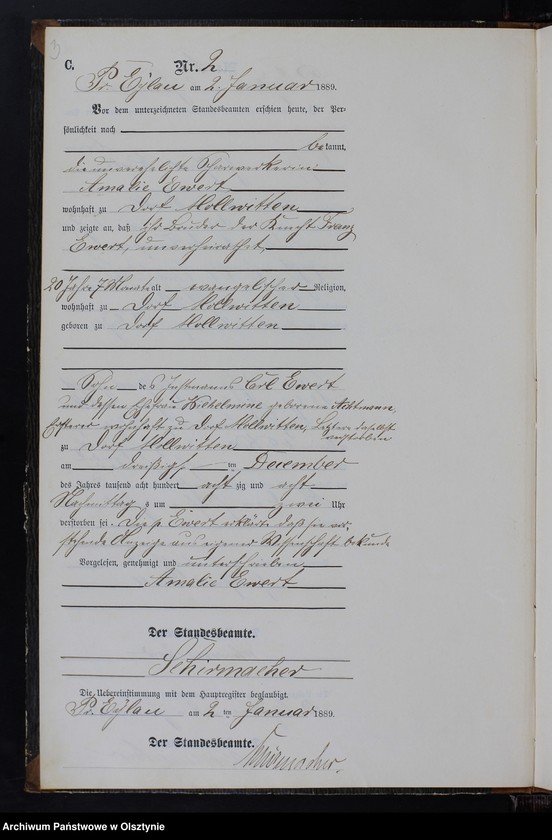 3
C. Nr. 2
Pr. Eylau am 2. Januar 1889.
Vor dem unterzeichneten Standesbeamten erschien heute, der Per-
sönlichkeit nach
bekannt,
die unverehelichte Scharwerkerin
Amalie Ewert
wohnhaft zu Dorf Mollwitten
und zeigte an, daß ihr Bruder der Knecht Franz
Ewert, unverheirathet,
20 Jahre 7 Monate alt evangelischer Religion,
wohnhaft zu Dorf Mollwitten
geboren zu Dorf Mollwitten
Sohn des Instmanns Carl Ewert
und dessen Ehefrau Wilhelmine geborene
Ersterer wohnhaft zu Dorf Mollwitten, Letztere daselbst
verstorben
zu Dorf Mollwitten
am dreißigten December
des Jahres tausend acht hundert achtzig und acht
Nachmittag s um zwei Uhr
verstorben sei. Die p. Ewert erklärte daß sie vor-
stehende Anzeige aus eigener Wissenschaft bekunde
Vorgelesen, genehmigt und unterschrieben
Amalie Ewert
Der Standesbeamte.
Schirmacher
Die Uebereinstimmung mit dem Hauptregister beglaubigt.
Pr. Eylau am 2 ten Januar 1889.
Der Standesbeamte.
Schirmacher.
Archiwum Państwowe w Olsztynie